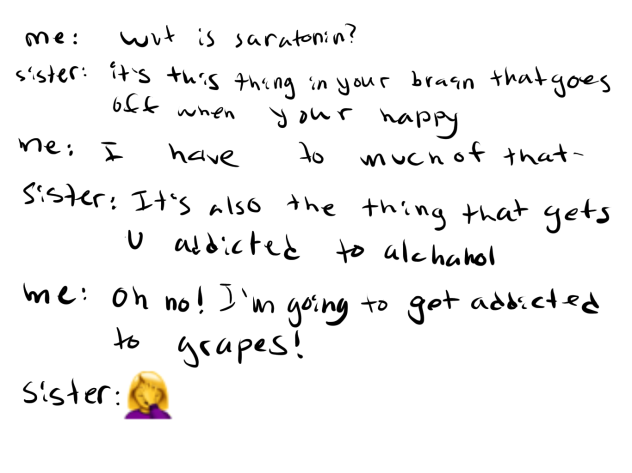 me: wut is saratonin?
sister: it's this thing in your brain that goes
off when your happy
me: I have to much of that-
Sister: It's also the thing that gets
U addicted to alchahol
me: Oh no! I'm going to get addicted
to grapes!
Sister: 🤦‍♀️